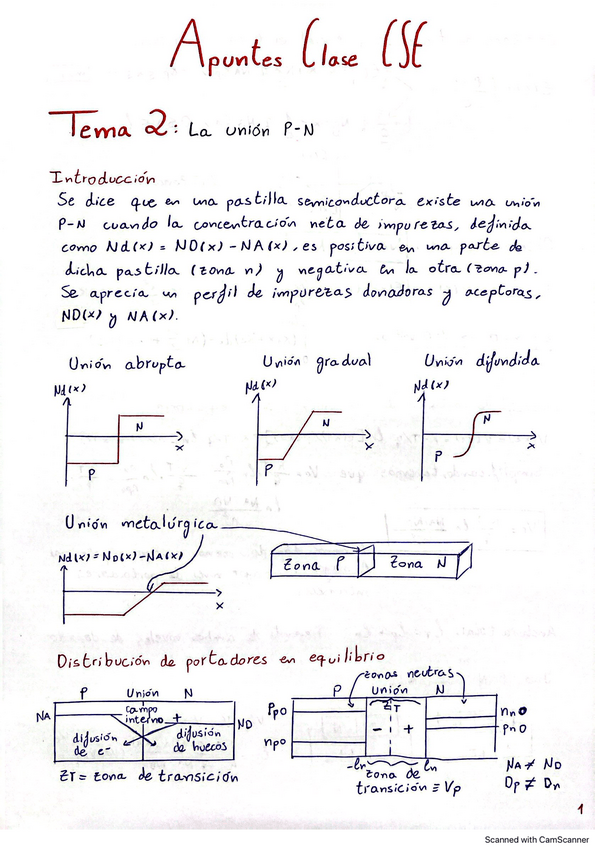 Apuntes Clase CSE
Tema 2: La unión P-N
Introducción
Se dice que en una pastilla semiconductora existe una unión
P-N cuando la concentración neta de impurezas, definida
como Nd(x) = ND(x) - NA(x), es positiva en una parte de
dicha pastilla (zona n) y negativa en la otra (zona p).
Se aprecia un perfil de impurezas donadoras y aceptoras,
ND(x) y NA(x).
Unión abrupta Unión gradual Unión difundida
Nd(x) Nd(x) Nd(x)
N N N
x x x
P P P
Unión metalúrgica
Nd(x) = ND(x) - NA(x)
zona P zona N
x
Distribución de portadores en equilibrio
zonas neutras
P Unión N P Unión N
NA campo interno + ND
difusión de e- difusión de huecos
Ppo ZT nno
npo - + pno
-lp ln
ZT = zona de transición
zona de
transición ≡ Vp
NA ≠ ND
Dp ≠ Dn
1
Scanned with CamScanner